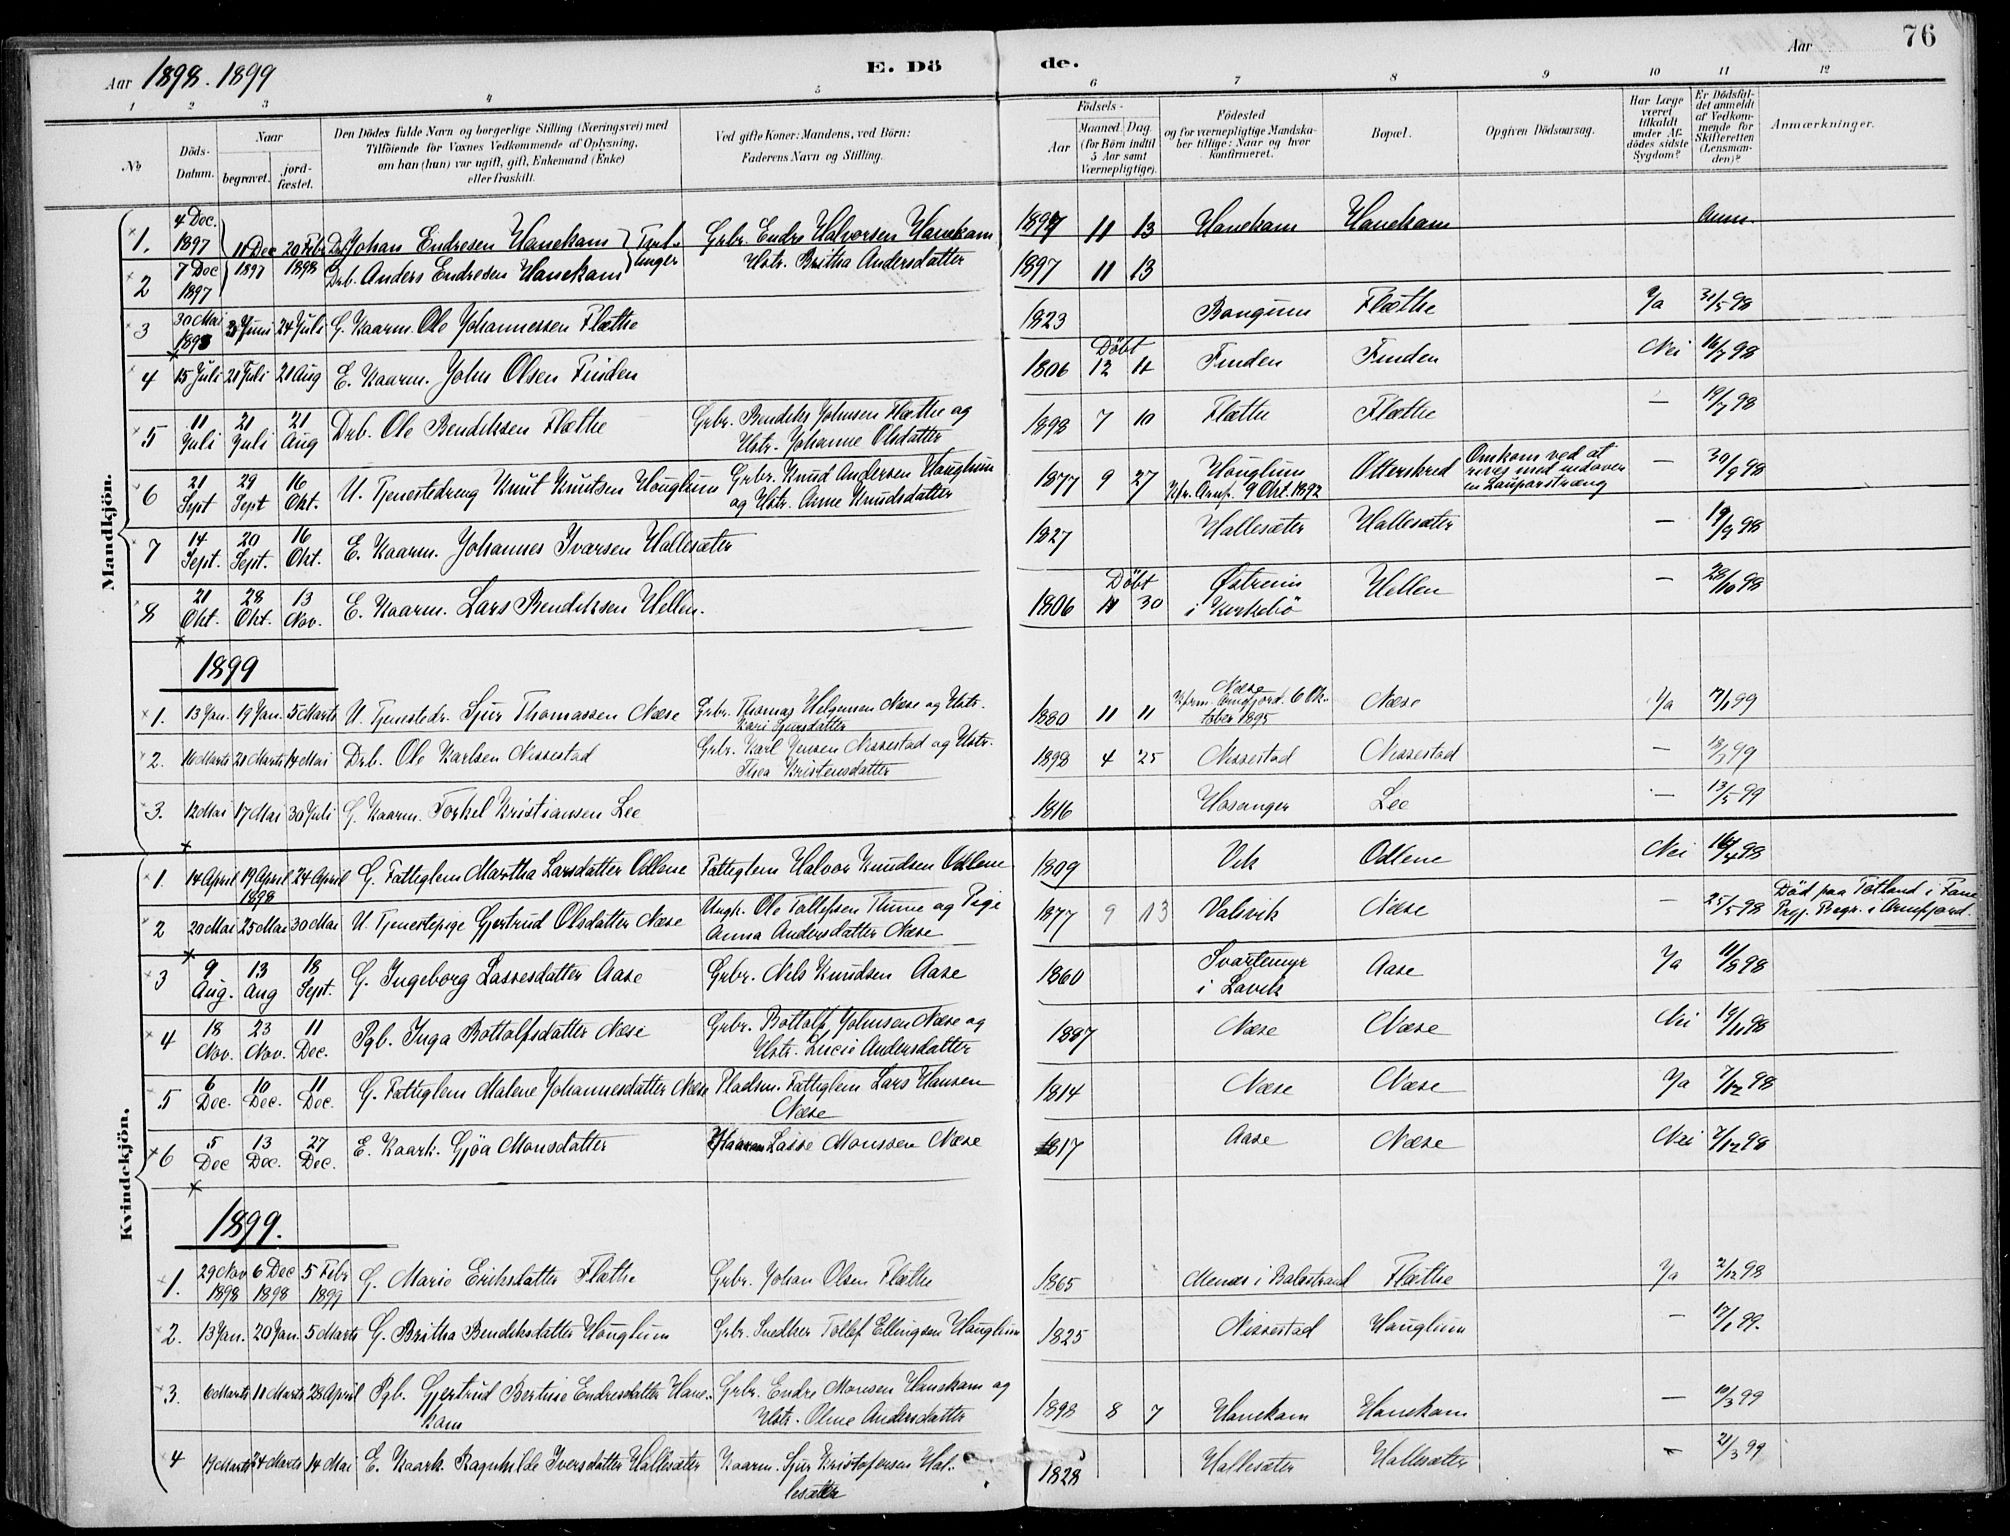 76
Aar 1898. 1899
E. Dö de.
Aar
1 2 3 4 5 6 7 8 9 10 11 12
No
Döds-Datum.
Naar
begravet. jordfæstet.
Den Dödes fulde Navn og borgerlige Stilling (Næringsvei) med
Tilföiende for Voxnes Vedkommende af Oplysning,
om han (hun) var ugift, gift, Enkemand (Enke)
eller fraskilt.
Ved gifte Koner: Mandens, ved Börn:
Faderens Navn og Stilling.
Födsels-
Aar
Maaned. Dag.
(for Börn indtil
5 Aar samt
Værnepligtige).
Födested
og for værnepligtige Mandska-
ber tillige: Naar og hvor
konfirmeret.
Bopæl.
Opgiven Dödsaarsag.
Har Læge
været
tilkaldt
under Af-
dödes sidste
Sygdom?
Er Dödsfal-
det anmeldt
af Vedkom-
mende for
Skifteretten
(Lensman-
den)?
Anmærkninger.
Mandkjön.
1. 4 Dec. 1897 11 Dec 1897 20 Febr 1898 Drb. Johan Endresen Hanekam Tvillinger Grbr. Endre Halvorsen Hanekam 1897 11 13 Hanekam Hanekam Anm.
2 7 Dec 1897 Drb. Anders Endresen Hanekam Hstr. Britha Andersdatter 1897 11 13
3 30 Mai 1898 3 Juni 24 Juli G. Kaarm. Ole Johannessen Flæthe 1823 Bongum Flæthe Ja 31/5 98
4 15 Juli 21 Juli 21 Aug E. Kaarm. John Olsen Finden 1806 Döbt 12 11 Finden Finden Nei 16/7 98
5 11 Juli 21 Juli 21 Aug Drb. Ole Bendiksen Flæthe Grbr. Bendiks Johnsen Flæthe og
Hstr. Johanne Olsdatter 1898 7 10 Flæthe Flæthe — 19/7 98
6 21 Sept 29 Sept 16 Okt. U. Tjenestedreng Knut Knutsen Houglum Grbr. Knud Andersen Houglum
og Hstr. Anne Knudsdatter 1877 9 27 Houglum
Kfr. Arnf. 9 Okt. 1892 Otterskred Omkom ved at
rives med udover
en Lauparstræng — 30/9 98
7 14 Sept. 20 Sept. 16 Okt. E. Kaarm. Johannes Iversen Hallesæter 1827 Hallesæter Hallesæter — 19/9 98
8 21 Okt. 28 Okt. 13 Nov. E. Kaarm. Lars Bendiksen Hellen. 1806 Döbt 11 30 Østreim
i Kirkebö Hellen — 28/10 98
1899
1. 13 Jan. 19 Jan. 5 Marts U. Tjenestedr. Sjur Thomassen Næse Grbr. Thomas Helgesen Næse og Hstr.
Kari Sjursdatter 1880 11 11 Næse
Kfrm. Arnefjord. 6 Ok-
tober 1895 Næse Ja 17/1 99
2. 16 Marts 21 Marts 14 Mai Drb. Ole Karlsen Nissestad Grbr. Karl Jensen Nissestad og Hstr.
Thea Kristensdatter 1898 4 25 Nissestad Nissestad — 18/3 99
3. 12 Mai 17 Mai 30 Juli G. Kaarm. Torkel Kristiansen Lee 1816 Hosanger Lee — 13/5 99
Kvindekjön.
1. 14 April 19 April 1898 24 April G. Fattiglem Martha Larsdatter Odlene Fattiglem Halvor Knudsen Odlene 1809 Vik Odlene Nei 16/4 98
2 20 Mai 25 Mai 30 Mai U. Tjenestepige Gjertrud Olsdatter Næse Ungk. Ole Tollefsen Thune og Pige
Anna Andersdatter Næse 1877 9 13 Valsvik Næse — 25/5 98 Död paa Totland i Fane
Prgj. Begr. i Arnefjord.
3 9 Aug. 13 Aug 18 Sept. G. Ingeborg Lassesdatter Aase Grbr. Nils Knudsen Aase 1860 Svartemyr
i Lavik Aase Ja 11/8 98
4 18 Nov. 23 Nov. 11 Dec. Pgb. Inga Bottolfsdatter Næse Grbr. Bottolf Johnsen Næse og
Hstr. Lucie Andersdatter 1897 Næse Næse Nei 19/11 98
5 6 Dec. 10 Dec. 11 Dec. G. Fattiglem Malene Johannesdatter Næse Pladsm. Fattiglem Lars Hansen
Næse 1814 Næse Næse Ja 7/12 98
6 5 Dec 13 Dec. 27 Dec. E. Kaark. Gjøa Monsdatter Kaarm Lasse Monssen Næse 1817 Aase Næse Nei 7/12 98
1899.
1. 29 Nov 1898 6 Dec 1898 5 Febr 1899 G. Marie Eriksdatter Flæthe Grbr. Johan Olsen Flæthe 1865 Menæs i Balestrand Flæthe Ja 2/12 98
2. 13 Jan. 20 Jan. 5 Marts G. Britha Bendiksdatter Houglum Grbr. Snedker Tollef Ellingsen Houglum 1825 Nissestad Houglum — 17/1 99.
3. 6 Marts 11 Marts 28 April Pgb. Gjertrud Bertine Endresdatter Hane-
kam Grbr. Endre Monsen Hanekam og
Hstr. Oline Andersdatter 1898 8 7 Hanekam Hanekam — 10/3 99
4 17 Marts 24 Marts 14 Mai E. Kaark. Ragnhilde Iversdatter Hallesæter Kaarm. Sjur Kristofersen Hal-
lesæter 1828 Hallesæter Hallesæter — 21/3 99